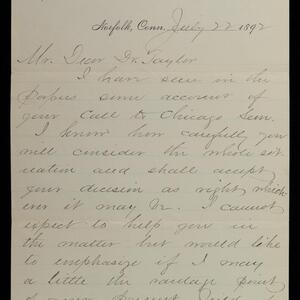 Norfolk, Conn. July 22 1892
My Dear Dr. Taylor
I have seen in the
papers some account of
your call to Chicago Sem.
I know how carefully you
will consider the whole sit-
uation and shall accept
your decision as right which
ever it may be. I cannot
expect to help you in
the matter but would like
to emphasize if I may
a little the vantage point
of your present